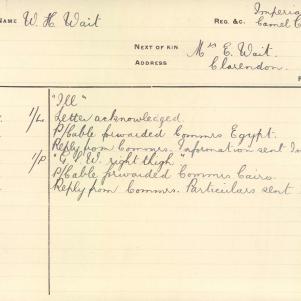 NAME W. H. Wait
REG. &C. Imperia
Camel C
NEXT OF KIN Mrs E. Wait.
ADDRESS Clarendon.
"Ill"
1/L. Letter acknowledged.
P/Cable forwarded Commrs Egypt.
Reply from Commrs. Information sent In
1/P "G.S.W. right thigh."
P/Cable forwarded Commrs Cairo.
Reply from Commrs. Particulars sent